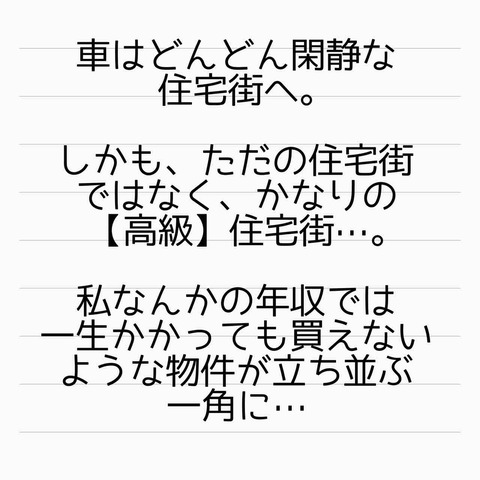 車はどんどん閑静な
住宅街へ。
しかも、ただの住宅街
ではなく、かなりの
【高級】住宅街…。
私なんかの年収では
一生かかっても買えない
ような物件が立ち並ぶ
一角に…